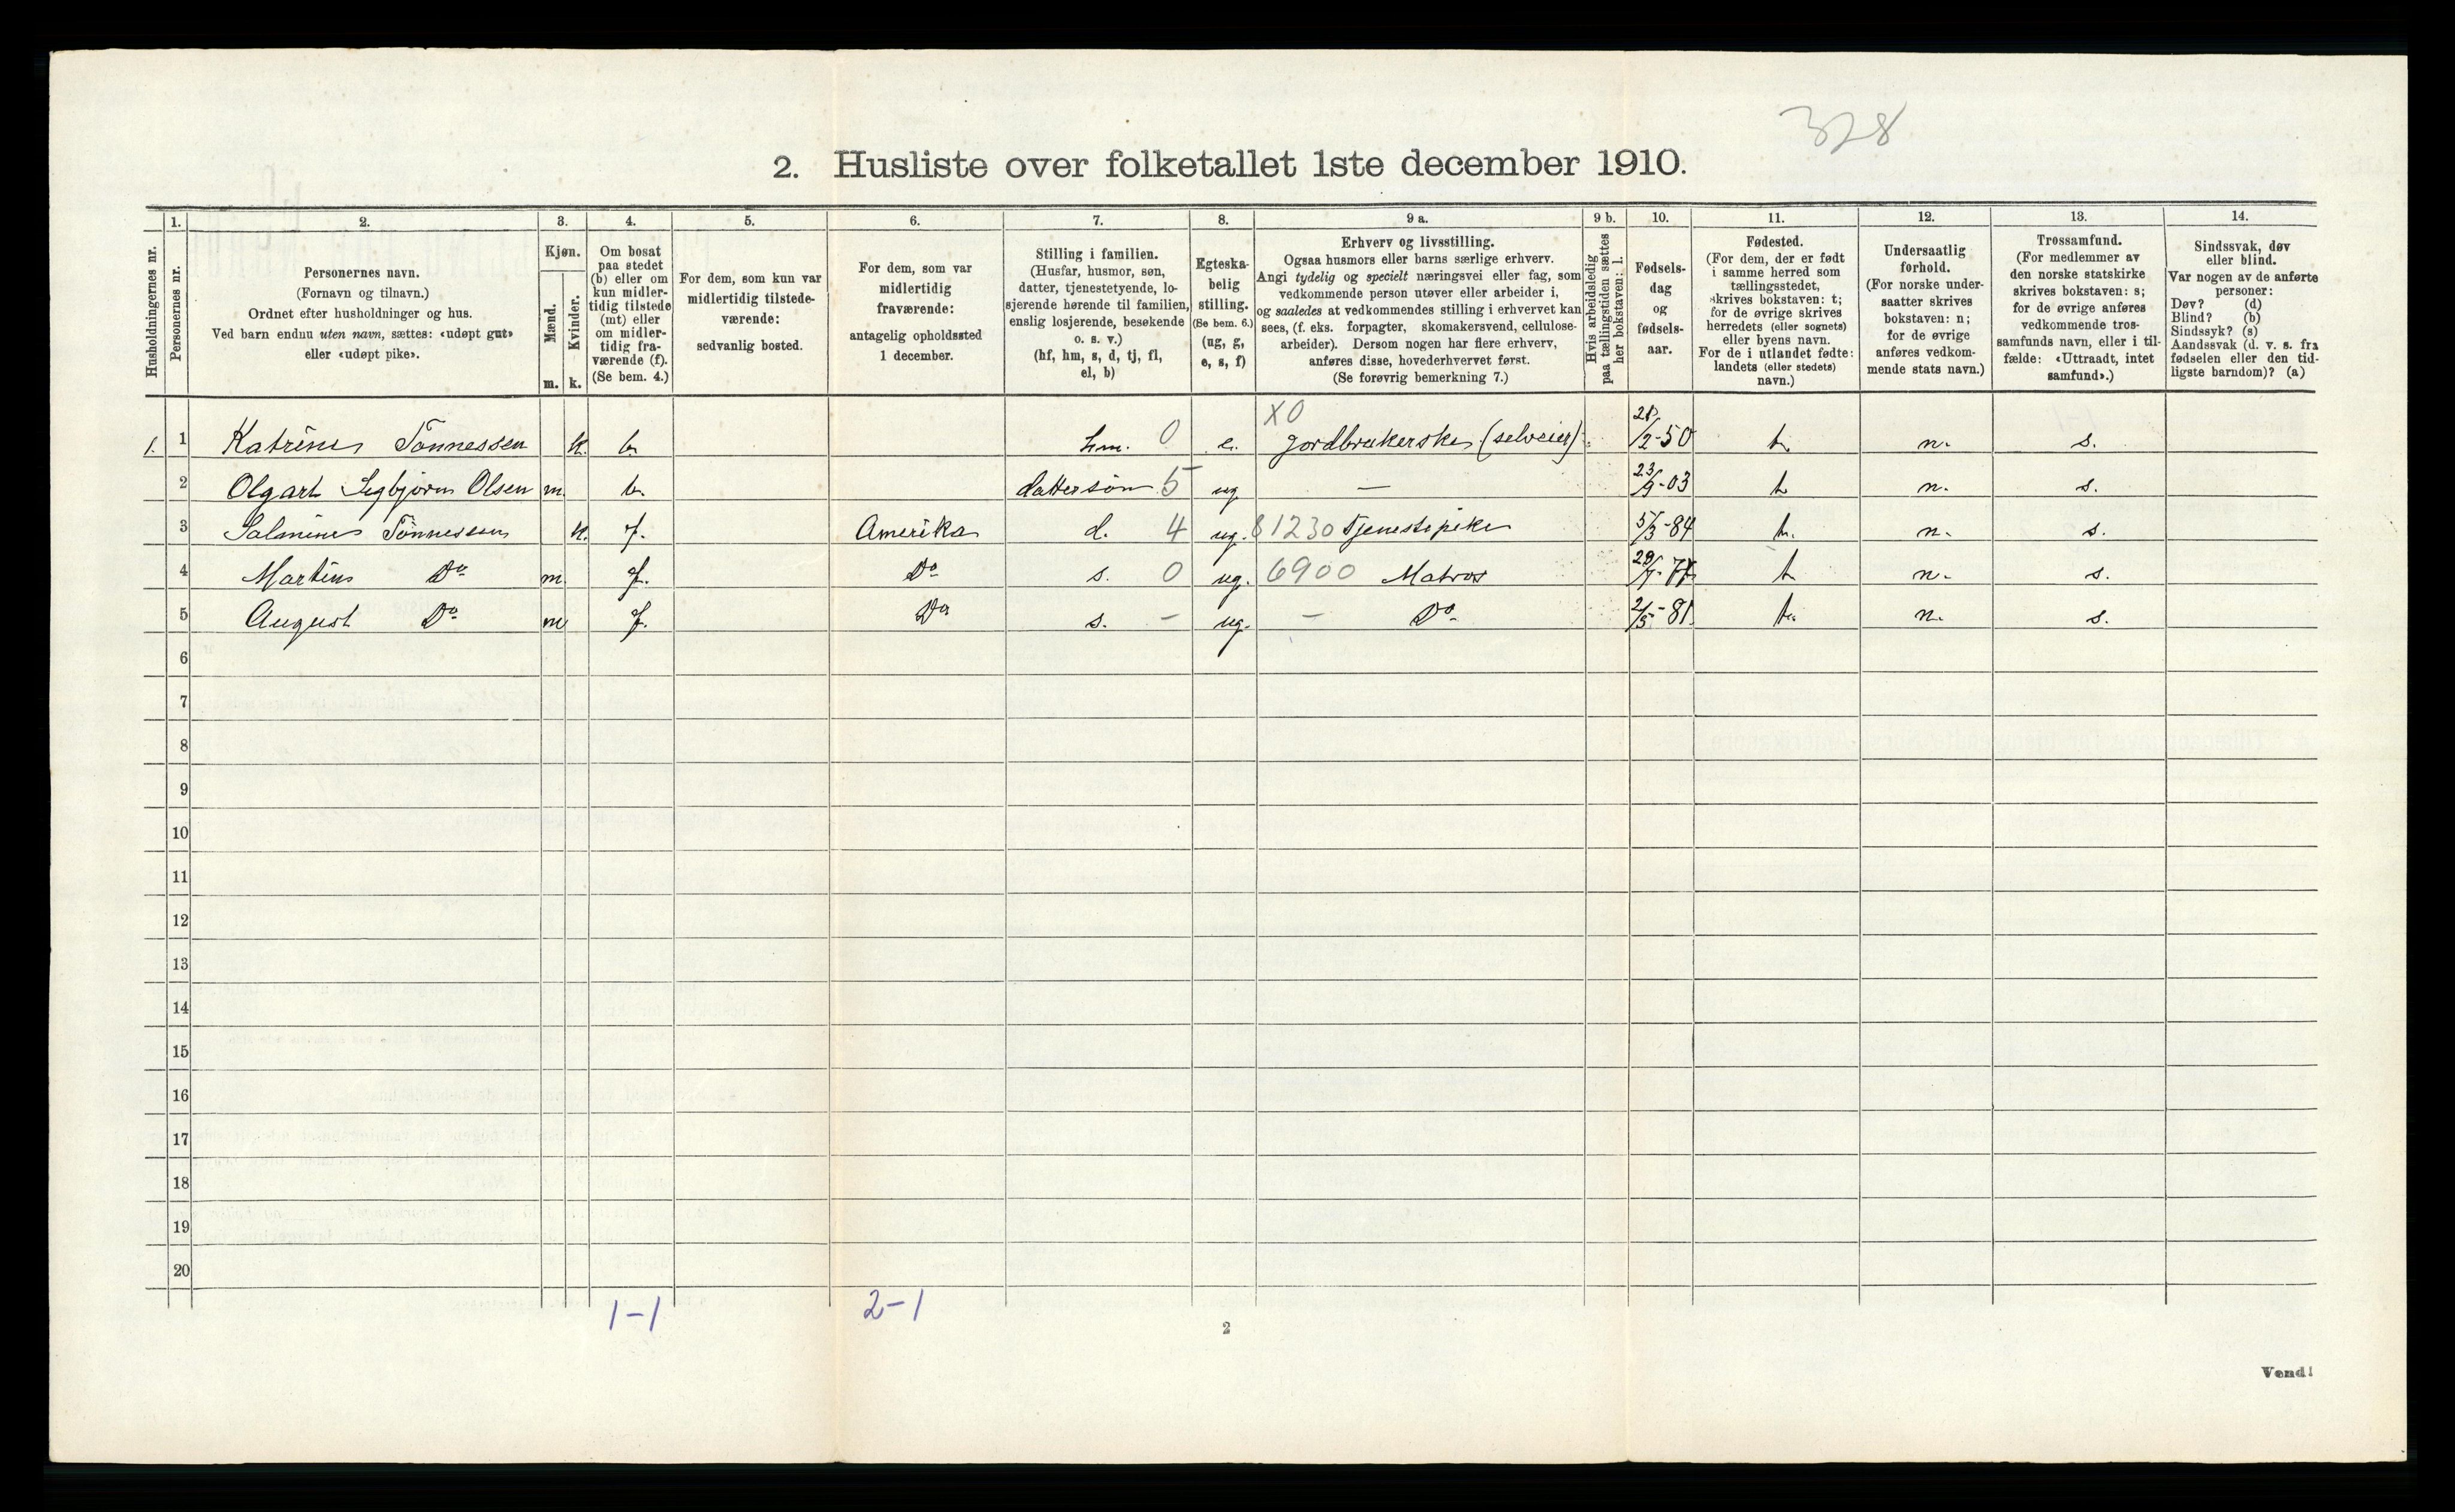 328
2. Husliste over folketallet 1ste december 1910.
Husholdningernes nr.
1. Personernes nr.
2. Personernes navn.
(Fornavn og tilnavn.)
Ordnet efter husholdninger og hus.
Ved barn endnu uten navn, sættes: «udøpt gut»
eller «udøpt pike».
3. Kjøn.
Mænd. m.
Kvinder. k.
4. Om bosat
paa stedet
(b) eller om
kun midler-
tidig tilstede
(mt) eller
om midler-
tidig fra-
værende (f).
(Se bem. 4.)
5. For dem, som kun var
midlertidig tilstede-
værende:
sedvanlig bosted.
6. For dem, som var
midlertidig
fraværende:
antagelig opholdssted
1 december.
7. Stilling i familien.
(Husfar, husmor, søn,
datter, tjenestetyende, lo-
sjerende hørende til familien,
enslig losjerende, besøkende
o. s. v.)
(hf, hm, s, d, tj, fl,
el, b)
8. Egteska-
belig
stilling.
(Se bem. 6.)
(ug, g,
e, s, f)
9 a. Erhverv og livsstilling.
Ogsaa husmors eller barns særlige erhverv.
Angi tydelig og specielt næringsvei eller fag, som
vedkommende person utøver eller arbeider i,
og saaledes at vedkommendes stilling i erhvervet kan
sees, (f. eks. forpagter, skomakersvend, cellulose-
arbeider). Dersom nogen har flere erhverv,
anføres disse, hovederhvervet først.
(Se forøvrig bemerkning 7.)
9 b. Hvis arbeidsledig
paa tællingstiden sættes
her bokstaven: l.
10. Fødsels-
dag
og
fødsels-
aar.
11. Fødested.
(For dem, der er født
i samme herred som
tællingsstedet,
skrives bokstaven: t;
for de øvrige skrives
herredets (eller sognets)
eller byens navn.
For de i utlandet fødte:
landets (eller stedets)
navn.)
12. Undersaatlig
forhold.
(For norske under-
saatter skrives
bokstaven: n;
for de øvrige
anføres vedkom-
mende stats navn.)
13. Trossamfund.
(For medlemmer av
den norske statskirke
skrives bokstaven: s;
for de øvrige anføres
vedkommende tros-
samfunds navn, eller i til-
fælde: «Uttraadt, intet
samfund».)
14. Sindssvak, døv
eller blind.
Var nogen av de anførte
personer:
Døv? (d)
Blind? (b)
Sindssyk? (s)
Aandssvak (d. v. s. fra
fødselen eller den tid-
ligste barndom)? (a)
1. 1 Katrine Tönnessen k. b. hm. 0 e. X0 Jordbrukerske (selveier) 21/2-50 t. n. s.
2 Olgart Sigbjörn Olsen m. b. dattersön 5 ug — 23/9-03 t n. s.
3 Salmine Tönnessen k. f. Amerika d. 4 ug. 81230 Tjenestepike 5/3-84 t. n. s.
4 Martin Do m. f. Do s. 0 ug. 6900 Matros t n. s.
5 August Do m f. Do s. - ug. - Do 2/5-81 t. n. s.
6
7
8
9
10
11
12
13
14
15
16
17
18
19
20
1-1 2-1
2
Vend!